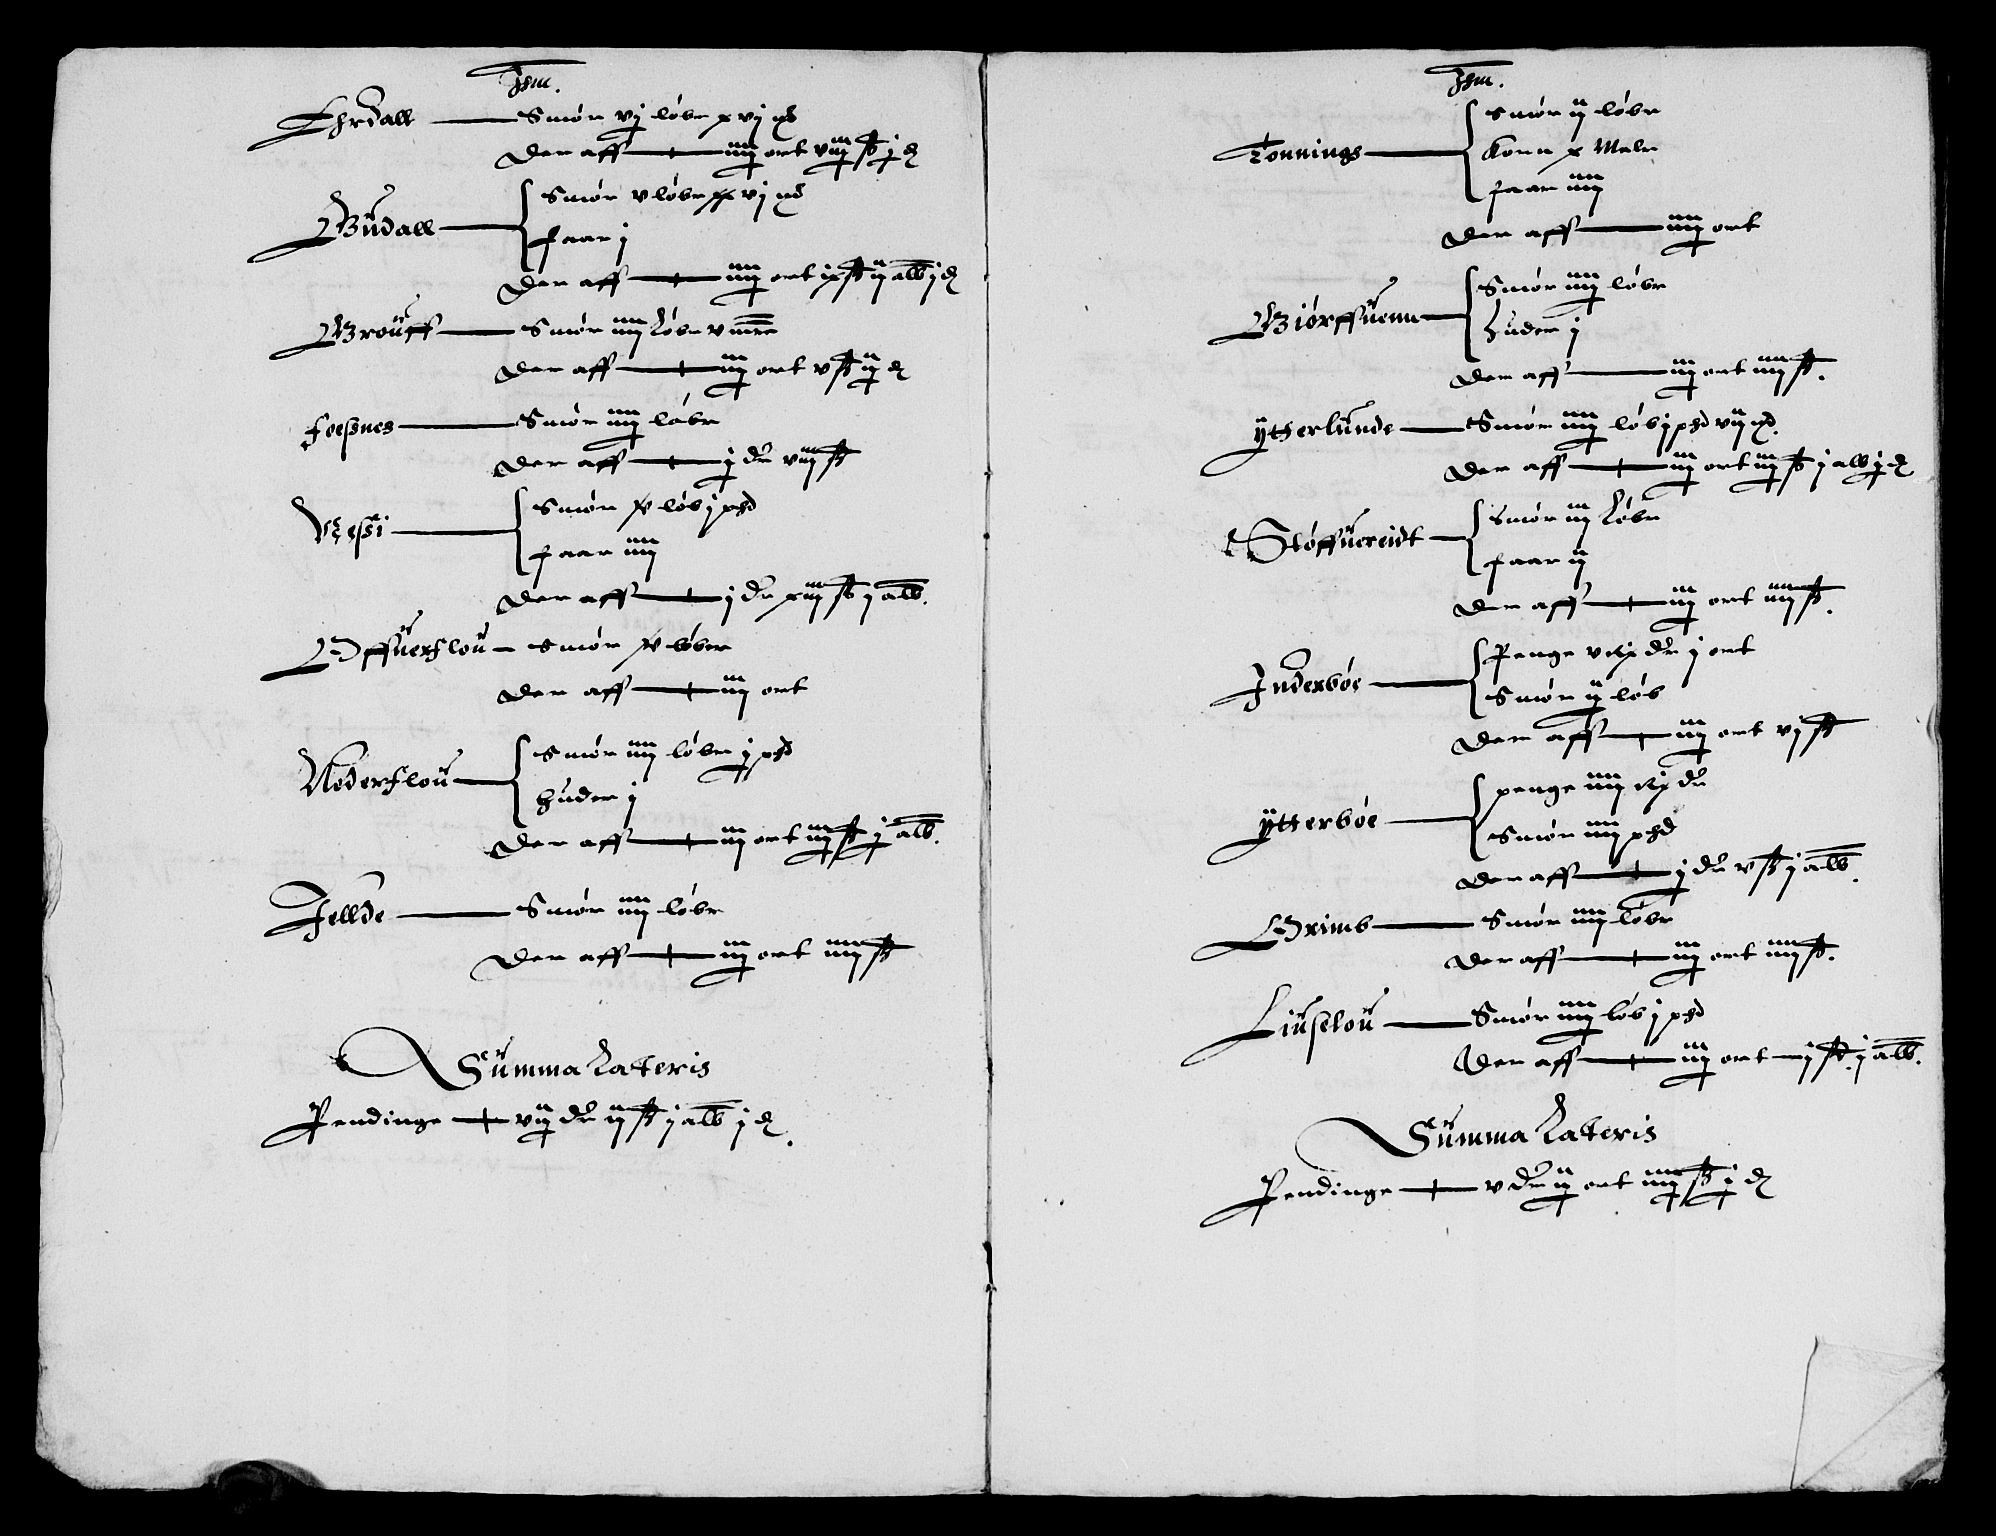 Jhm.
Ehrdall — Smör vj löbe xvj mk
Der aff — iiij ort viij ß j d
Büdall — Smör v löbe xvj mk
faar j
Der aff — iiij ort ix ß ij alb j d
Broüff — Smör iiij löbe v
Der aff — iij ort v ß ij d
foeßnes — Smör iiij löbe
Der aff — j dr viij ß
Veßi — Smör löb j pd
faar iiij
Der aff — j dr xiij ß j alb.
Offüerflou — Smör löber
Der aff — iij ort
Nederflou — Smör iiij löbe j pd
Huder j
Der aff — iij ort iij ß j alb.
Jellde — Smör iiij löbe
Der aff — iij ort iiij ß
Summa Lateris
Pendinge — vij dr ij ß j alb j d.
Jhm.
Tonnings — Smör ij löbe
Korn x Mele
faar iiij
Der aff — iiij ort
Biörffüenn — Smör iiij löbe
Huder j
Der aff — iij ort iiij ß.
ÿtterlünde — Smör iiij löb j pd vij mk.
Der aff — iij ort iij ß j alb j d
Stöffüereidt — Smör iij löbe
faar ij
Der aff — iij ort iiij ß.
Jnderböe — Penge v Rix dr j ort
Smör ij löb
Der aff — iij ort vj ß
ÿtterböe — penge iiij Rix dr
Smör iiij pd
Der aff — j dr v ß j alb.
Grimb — Smör iiij löbe
Der aff — iij ort iiij ß.
Liüselou — Smör iiij löb j pd
Der aff — iij ort j ß. j alb.
Summa Lateris
Pendinge — v dr ij ort iiij ß j d